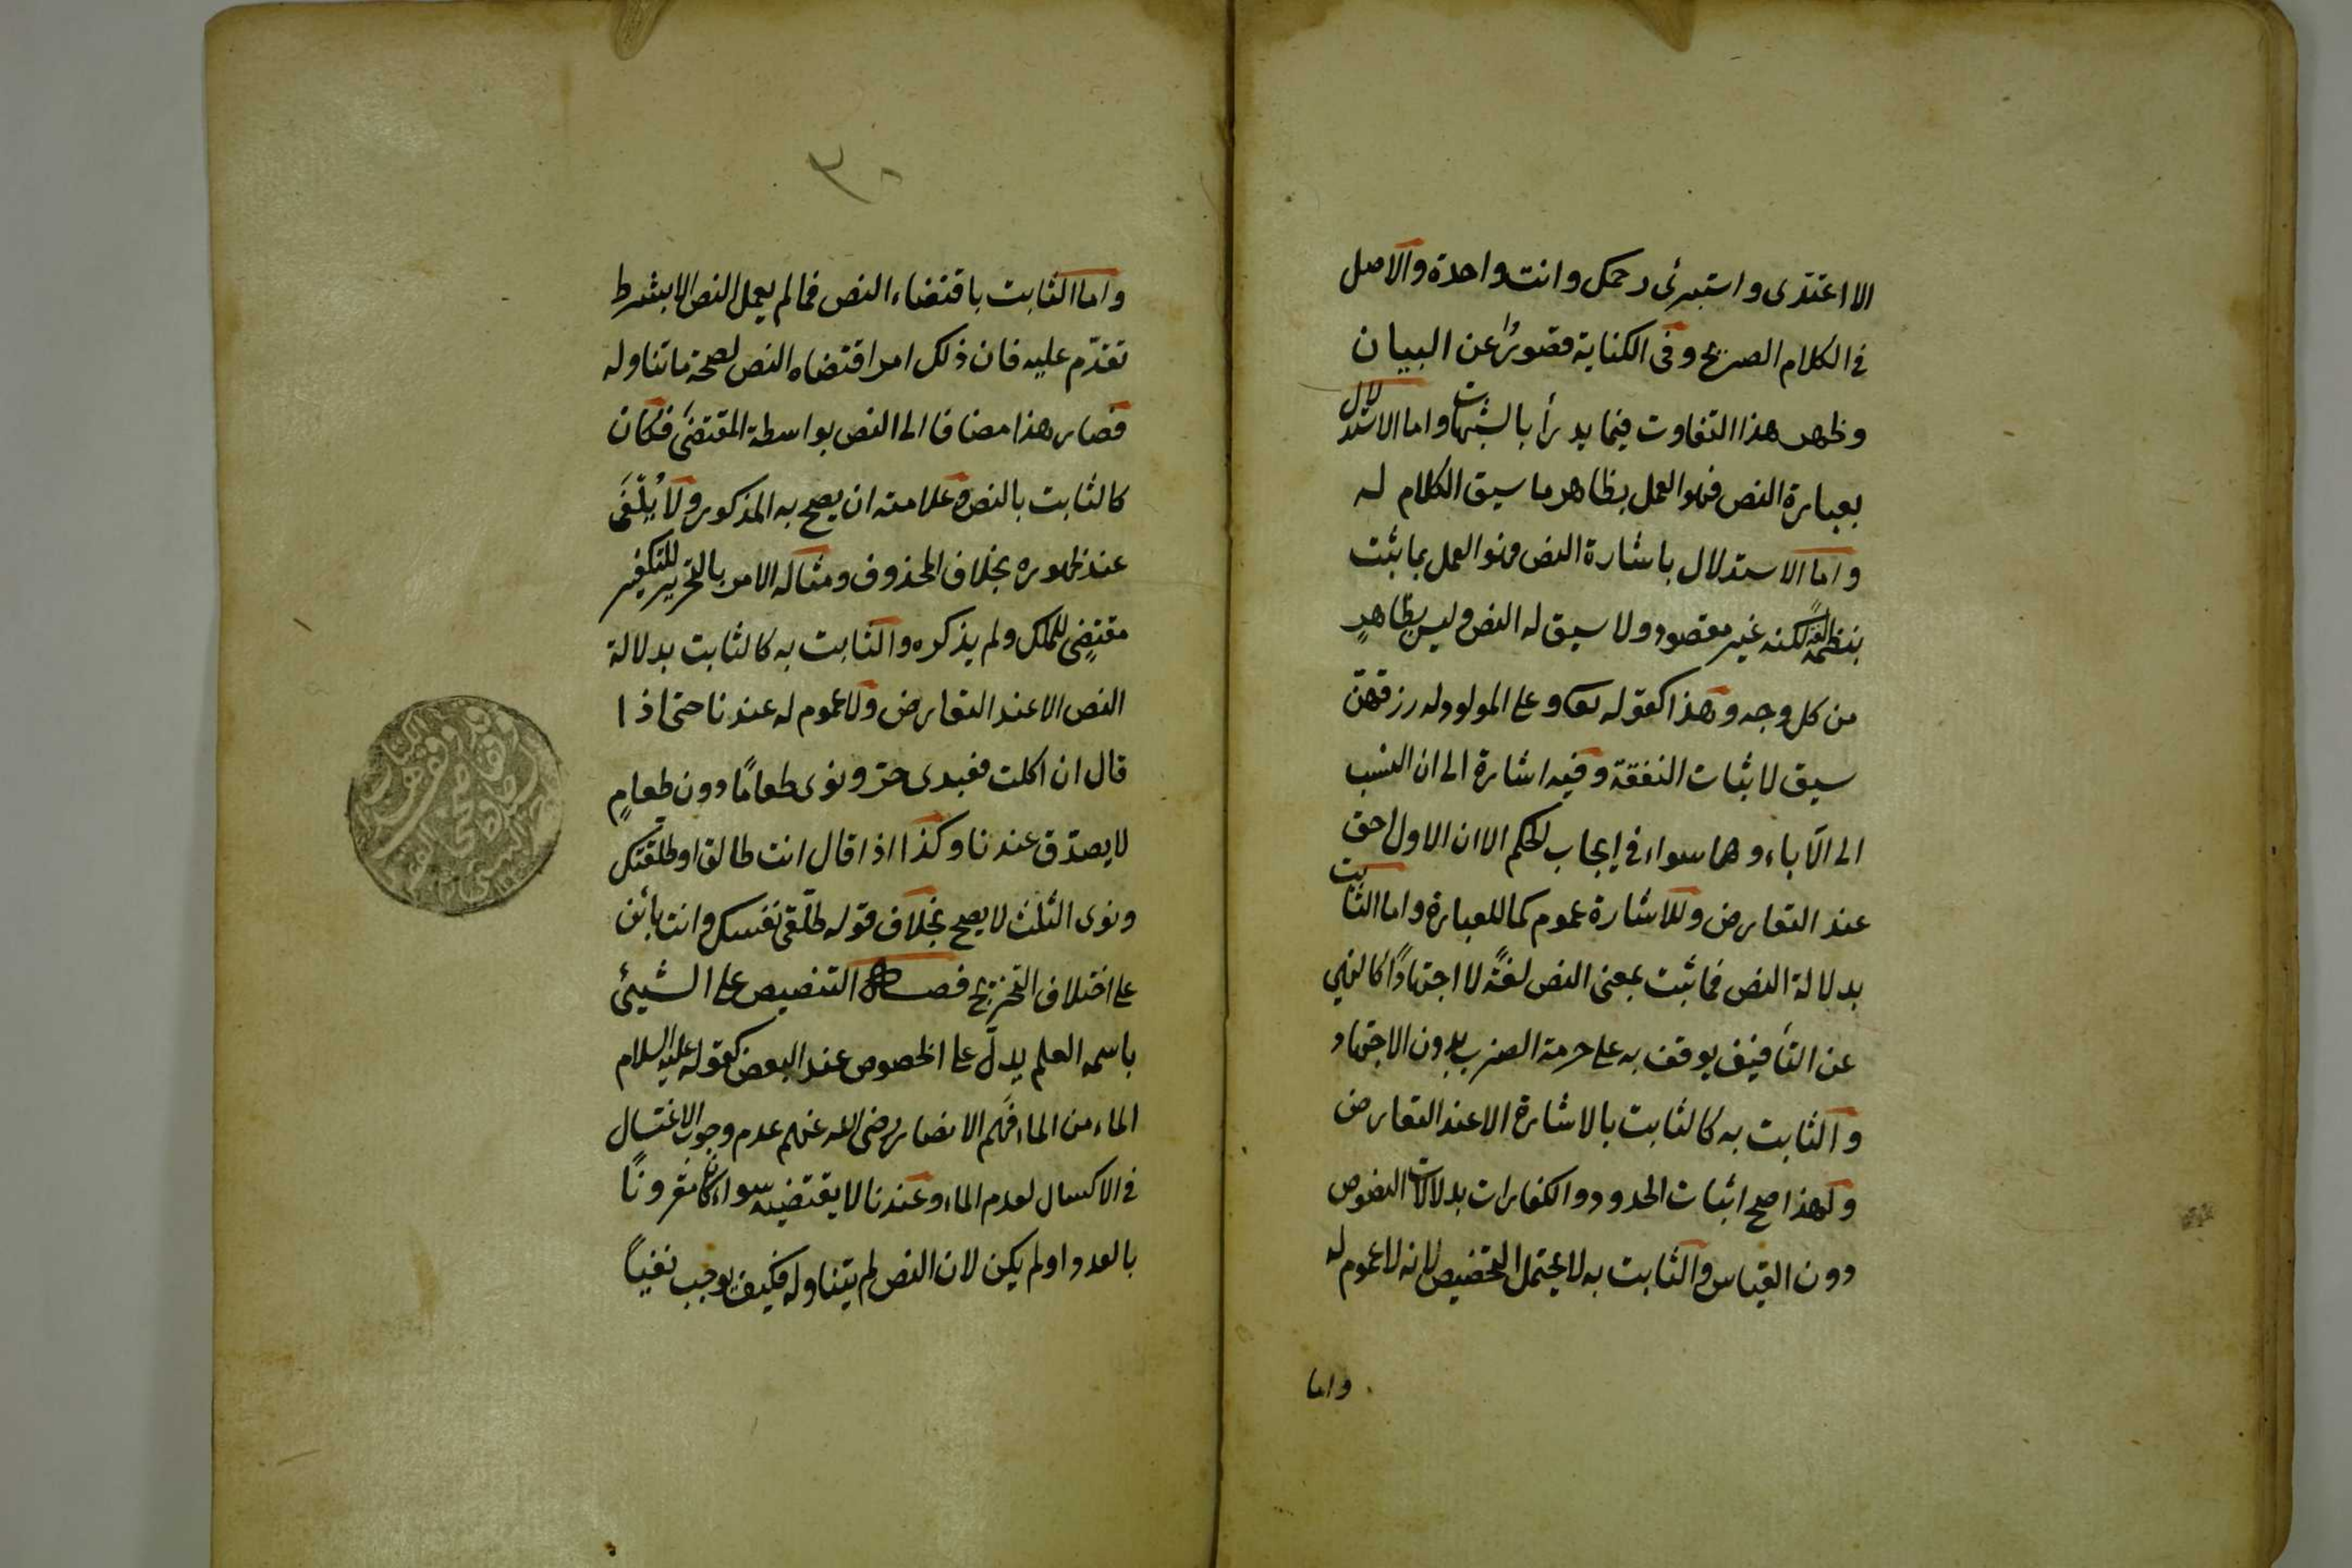 الا اعتدى واستبرئى رحمك وانت واحدة والاصل
فى الكلام الصريح وفى الكناية قصورًا عن البيان
وظهر هذا التفاوت فيما يدرأ بالشبهات واما الاستدلال
بعبارة النص فهو العمل بظاهر ما سيق الكلام له
واما الاستدلال باشارة النص فهو العمل بما ثبت
بنظمه لغةً لكنه غير مقصود ولا سيق له النص وليس بظاهرٍ
من كل وجه وهذا كقوله تعا وعلى المولود له رزقهن
سيق لاثبات النفقة وفيه اشارة الى ان النسب
الى الآباء وهما سواء فى ايجاب الحكم الا ان الاول احق
عند التعارض وللاشارة عموم كما للعبارة واما الثابت
بدلالة النص فما ثبت بمعنى النص لغةً لا اجتهادًا كالنهى
عن التأفيف يوقف به على حرمة الضرب بدون الاجتهاد
والثابت به كالثابت بالاشارة الا عند التعارض
ولهذا صح اثبات الحدود والكفارات بدلالات النصوص
دون القياس والثابت به لا يحتمل التخصيص لانه لا عموم له
واما
٣٠
واما الثابت باقتضاء النص فما لم يعمل النص الا بشرط
تقدّم عليه فان ذلك امر اقتضاه النص لصحة ما تناوله
فصار هذا مضافا الى النص بواسطة المقتضى فكان
كالثابت بالنص وعلامته ان يصح به المذكور ولا يُلْغَى
عند ظهوره بخلاف المحذوف ومثاله الامر بالتحرير للتكفير
مقتضٍى للملك ولم يذكره والثابت به كالثابت بدلالة
النص الا عند التعارض ولا عموم له عندنا حتى اذا
قال ان اكلت فعبدى حر ونوى طعامًا دون طعامٍ
لا يصدّق عندنا وكذا اذا قال انت طالق او طلقتك
ونوى الثلث لا يصح بخلاف قوله طلّقى نفسك وانت بائن
على اختلاف التخريج فصل التنصيص على الشيئ
باسمه العلم يدلّ على الخصوص عند البعض كقوله عليه السلام
الماء من الماء فَهم الانصار رضى الله عنهم عدم وجوب الاغتسال
فى الاكسال لعدم الماء وعندنا لا يقتضيه سواء كان مقرونًا
بالعدد او لم يكن لان النص لم يتناوله فكيف يوجب نفيًا